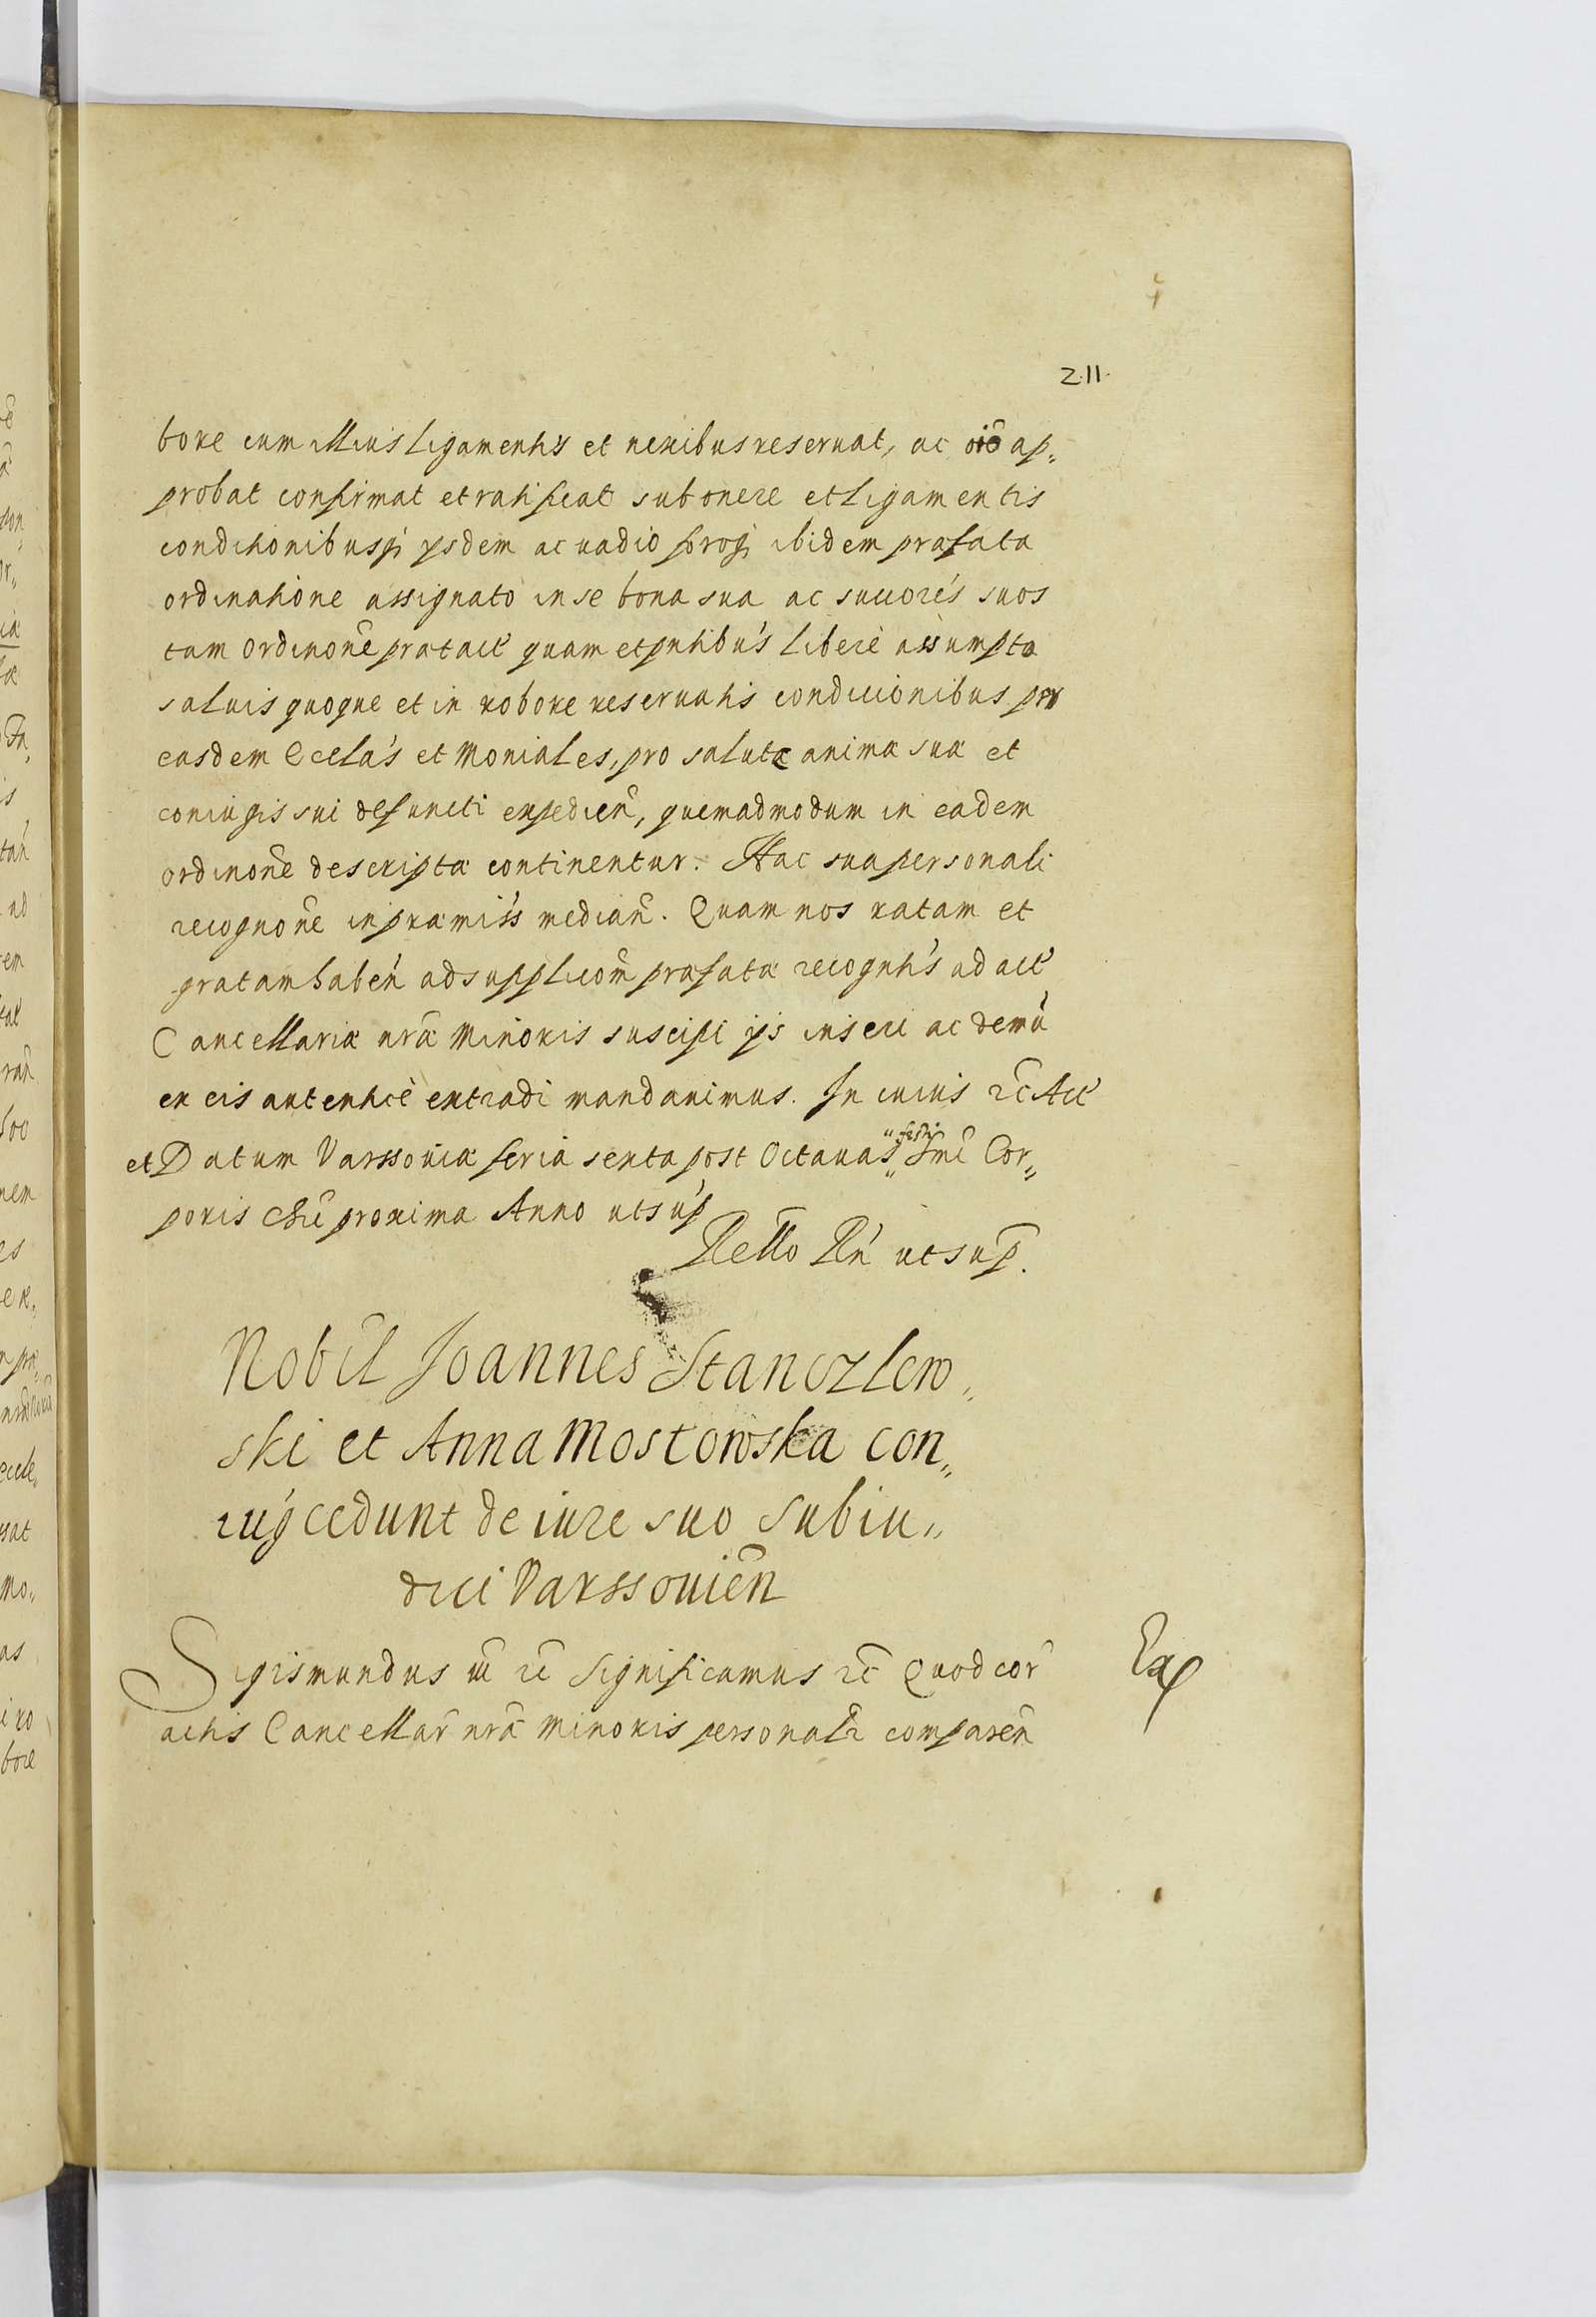 211.
bore cum illius ligamentis et nexibus reseruat, ac oiõ ap„
probat confirmat et ratificat sub onere et ligamentis
conditionibusq́ ysdem ac uadio foroq́ ibidem præfata
ordinatione assignato in se bona sua ac succores suos
tam ordinone prætact quam et pntibus libere assumpto
saluis quoque et in robore reseruatis condicionibus per
easdem Eccla's et Moniales, pro salute animæ suæ et
coniugis sui defuncti expedien̄, quemadmodum in eadem
ordinone descripta continentur. Hac sua personali
recognone in præmiss median̄. Quam nos ratam et
gratam haben̄ ad supplicom̄ præfatæ recogntis ad act
Cancellariæ nræ Minoris suscipi ijs inseri ac demū
ex eis autentice extradi mandauimus. In cuius rc̄ Act
et Datum Varssouiæ feria sexta post Octauas „festi„ Smi Cor„
poris Chri proxima Anno ut sup
Rello Rn̄ ut sup̄.
Nobil Joannes Stanczlew„
ski et Anna Mostowska con„
iug̃ cedunt de iure suo Subiu„
dici Varssouien̄
Sigismundus iii rc̄ Significamus rc̄ Quod cor̄
actis Cancellar̄ nræ Minoris personalr̄ comparen̄
Exp